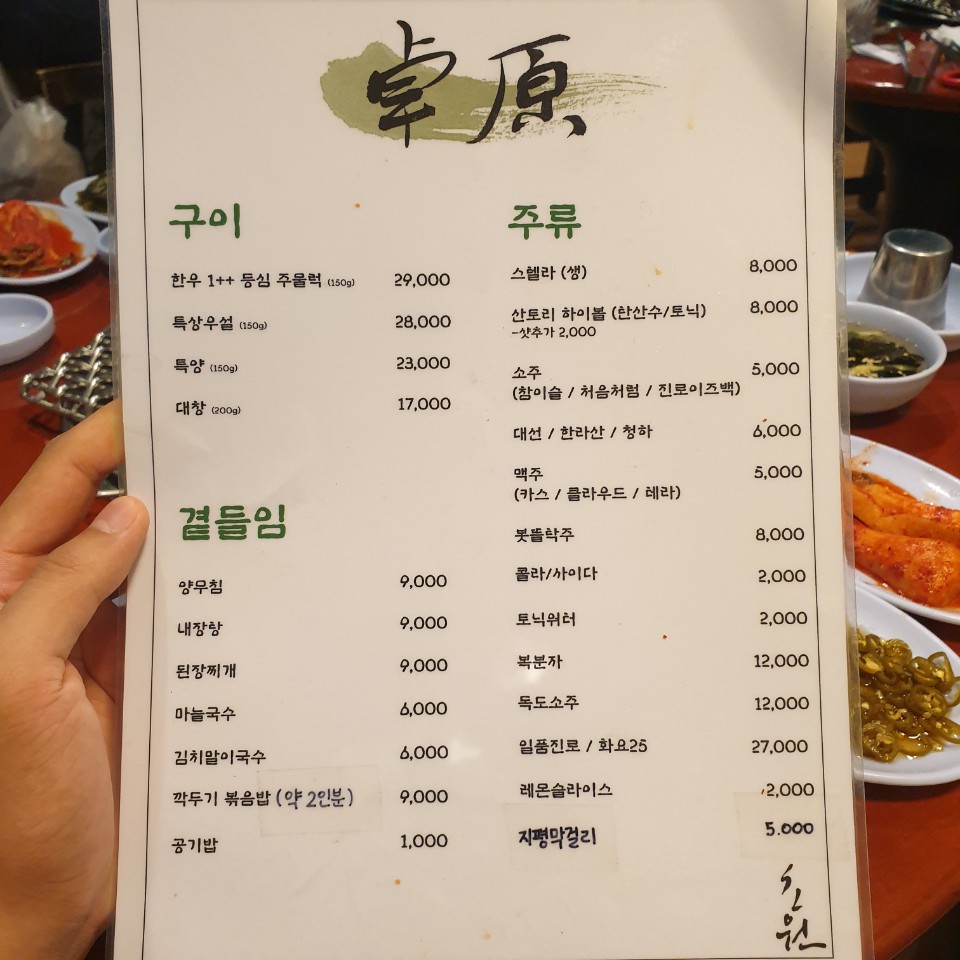 草原
구이
한우 1++ 등심 주물럭 (150g) 29,000
특상우설 (150g) 28,000
특양 (150g) 23,000
대창 (200g) 17,000
곁들임
양무침 9,000
내장탕 9,000
된장찌개 9,000
마늘국수 6,000
김치말이국수 6,000
깍두기 볶음밥 (약 2인분) 9,000
공기밥 1,000
주류
스텔라 (생) 8,000
산토리 하이볼 (한산수/토닉) 8,000
-샷추가 2,000
소주 5,000
(참이슬 / 처음처럼 / 진로이즈백)
대선 / 한라산 / 청하 6,000
맥주 5,000
(카스 / 클라우드 / 테라)
봇뜰탁주 8,000
콜라/사이다 2,000
토닉워터 2,000
복분자 12,000
독도소주 12,000
일품진로 / 화요25 27,000
레몬슬라이스 2,000
지평막걸리 5.000
초
원